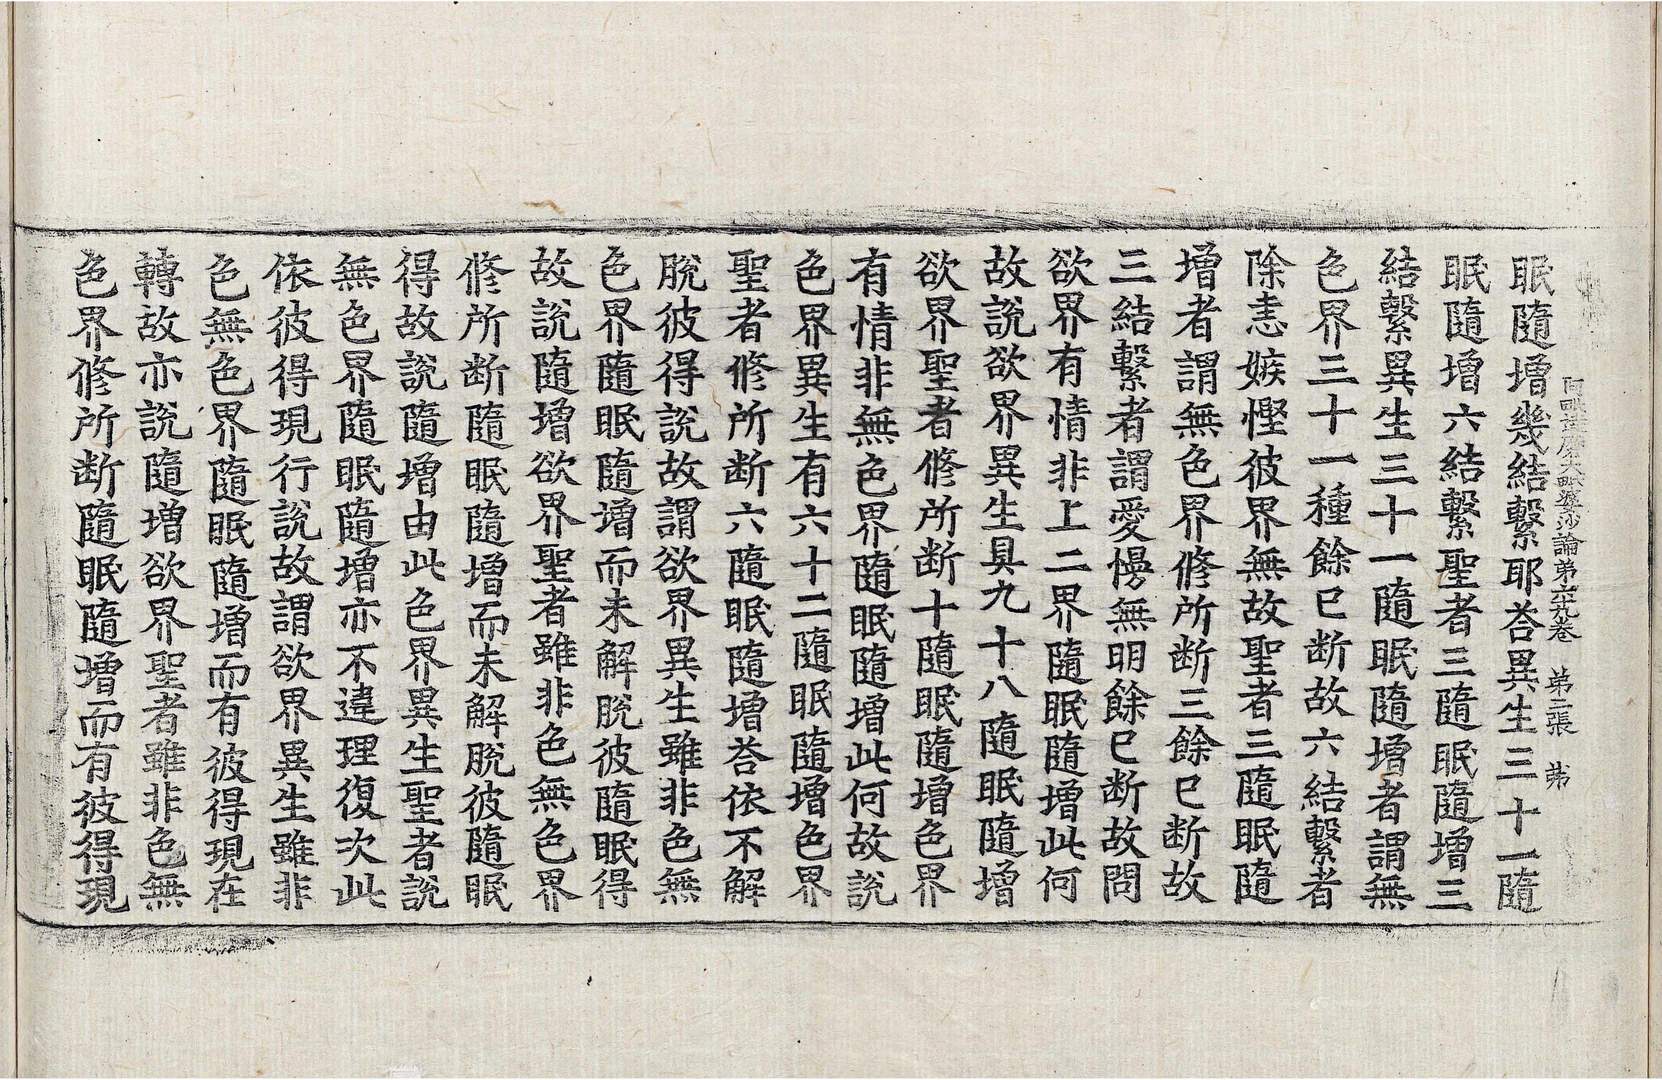 阿毗達磨大毗婆沙論第六十九卷 第二張 弗
眠隨增幾結繫耶荅異生三十一隨
眠隨增六結繫聖者三隨眠隨增三
結繫異生三十一隨眠隨增者謂無
色界三十一種餘已断故六結繫者
除恚嫉慳彼界無故聖者三隨眠隨
增者謂無色界修所断三餘已断故
三結繫者謂愛慢無明餘已断故問
欲界有情非上二界隨眠隨增此何
故說欲界異生具九十八隨眠隨增
欲界聖者修所断十隨眠隨增色界
有情非無色界隨眠隨增此何故說
色界異生有六十二隨眠隨增色界
聖者修所断六隨眠隨增荅依不解
脫彼得說故謂欲界異生雖非色無
色界隨眠隨增而未解脫彼隨眠得
故說隨增欲界聖者雖非色無色界
修所断隨眠隨增而未解脫彼隨眠
得故說隨增由此色界異生聖者說
無色界隨眠隨增亦不違理復次此
依彼得現行說故謂欲界異生雖非
色無色界隨眠隨增而有彼得現在
轉故亦說隨增欲界聖者雖非色無
色界修所断隨眠隨增而有彼得現